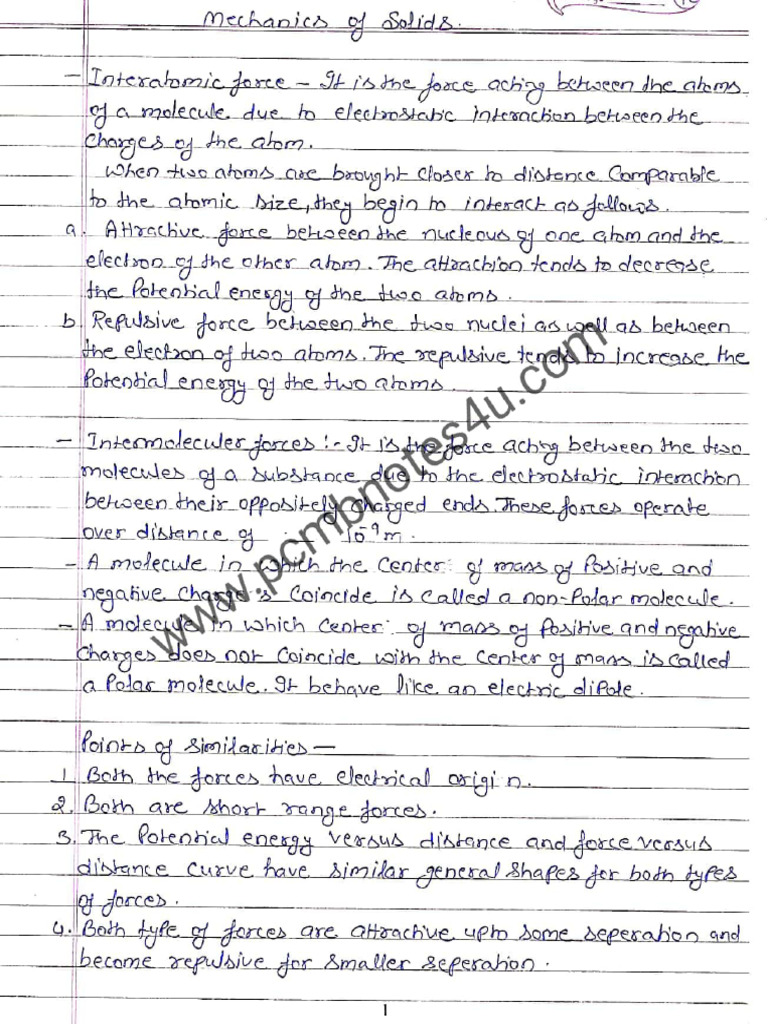 Mechanics of Solids.
- Interatomic force - It is the force acting between the atoms
of a molecule due to electrostatic interaction between the
charges of the atom.
When two atoms are brought closer to distance Comparable
to the atomic size, they begin to interact as follows.
a. Attractive force between the nucleous of one atom and the
electron of the other atom. The attraction tends to decrease
the Potential energy of the two atoms.
b. Repulsive force between the two nuclei as well as between
the electron of two atoms. The repulsive tends to increase the
Potential energy of the two atoms.
- Intermoleculer forces :- It is the force acting between the two
molecules of a substance due to the electrostatic interaction
between their oppositely charged ends. These forces operate
over distance of 10⁻⁹m.
- A molecule in which the Center of mass of Positive and
negative Charge's Coincide is called a non-Polar molecule.
- A molecule in which center of mass of positive and negative
Charges does not Coincide with the center of mass is called
a Polar molecule. It behave like an electric dipole.
Points of similarities —
1. Both the forces have electrical origin.
2. Both are short range forces.
3. The Potential energy versus distance and force versus
distance curve have similar general shapes for both types
of forces.
4. Both type of forces are attractive upto some seperation and
become repulsive for smaller seperation.
www.pcmbnotes4u.com
1